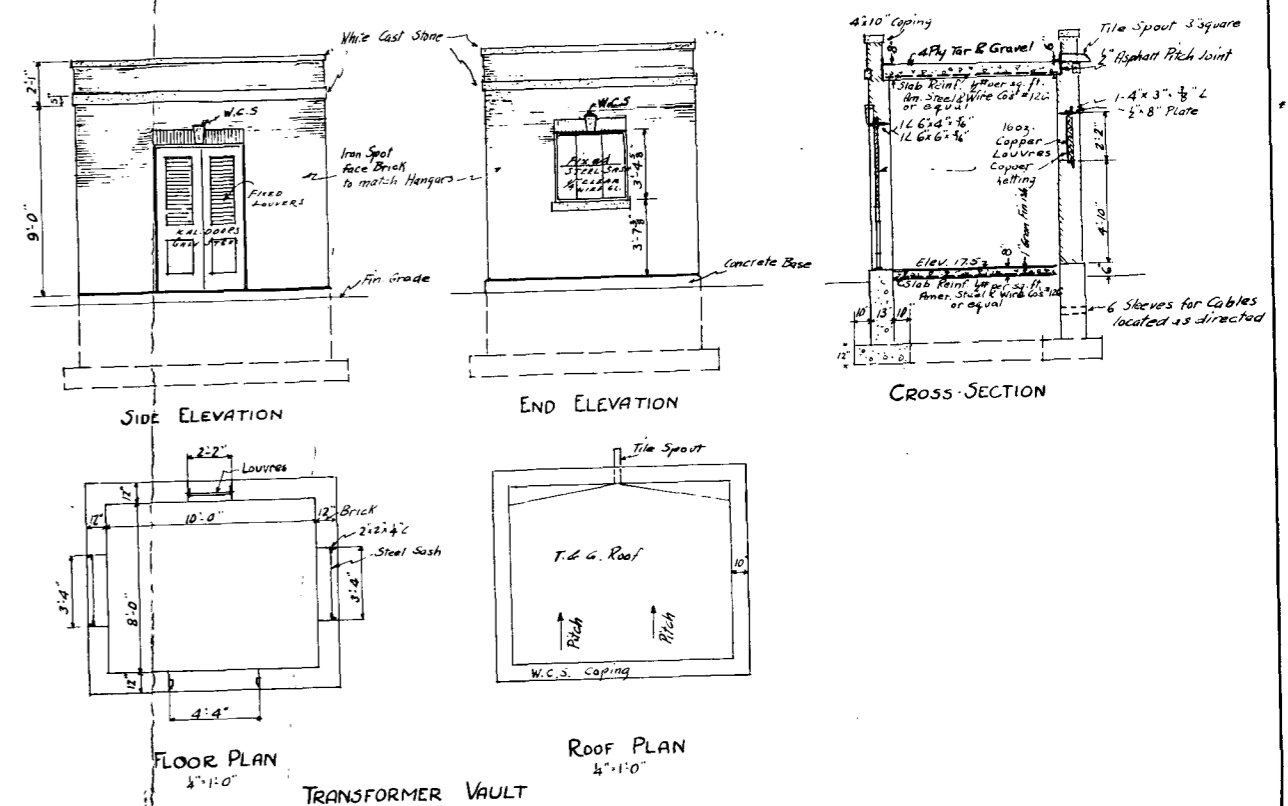 White Cast Stone
2'-1"
5"
W.C.S
9'-0"
FIXED
LOUVERS
KAL. DOORS
GALV STEEL
Iron Spot
face Brick
to match Hangars
Fin Grade
SIDE ELEVATION
W.C.S
Fixed
STEEL SASH
1/4" CLEAR
WIRE GL.
3'-4 5/8"
3'-7 3/8"
Concrete Base
END ELEVATION
4"x10" Coping
8"
4 Ply Tar & Gravel
6"
Tile Spout 3" square
1/2" Asphalt Pitch Joint
Slab Reinf. 1/2# per sq. ft.
Am. Steel & Wire Cos #126
or equal
1-4"x3"x3/8" L
1/2"x8" Plate
1L 6"x4"x3/8"
1L 6"x6"x3/8"
16oz.
Copper
Louvres
Copper
Netting
2'-2"
4'-10"
6"
1" Gran Finish
Elev. 17.5
8"
Slab Reinf. 1/2# per sq. ft.
Amer. Steel & Wire Cos #126
or equal
10" 13" 10"
12"
6 Sleeves for Cables
located as directed
CROSS-SECTION
2'-2"
Louvres
12"
12" 10'-0" 12"
Brick
2"x2"x1/4" L
Steel Sash
3'-4"
8'-0"
3'-4"
12"
4'-4"
FLOOR PLAN
1/4"=1'-0"
Tile Spout
T. & G. Roof
10"
Pitch
Pitch
W.C.S. Coping
ROOF PLAN
1/4"=1'-0"
TRANSFORMER VAULT